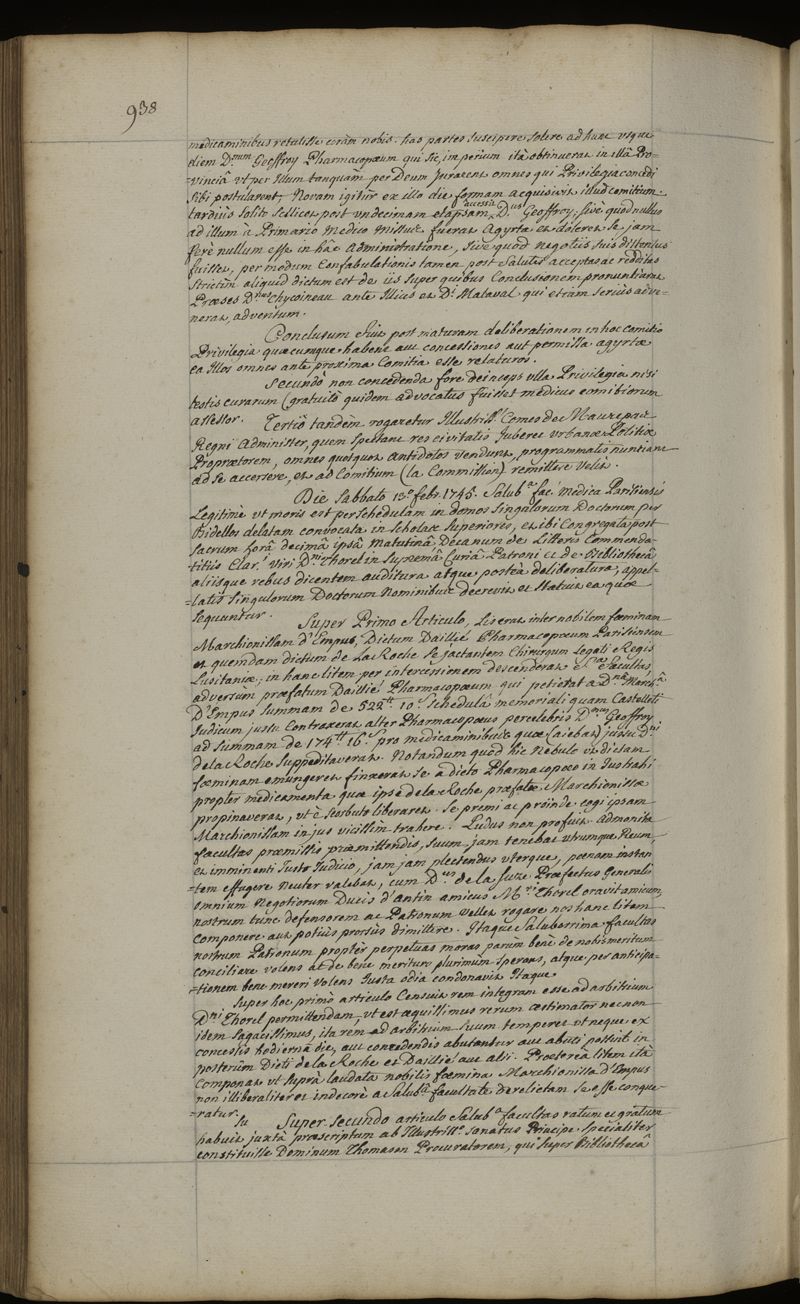 938
medicaminibus retulisse coràm nobis. has partes suscipere solere ad hunc usque
diem D.num Geoffroy Pharmacopæum qui sic imperium ità obtinuerat in illâ Pro=
=vinciâ vt per Illum tanquam per Deum Jurarent omnes qui Privilegia concedi
sibi postularent, Novam igitur ex illo die formam acquisivit illud comitium.
tardiùs solito scilicet post vndecimam elapsam accessit D.nus Geoffroy, sivè quod nullus
ad illum à Primario Medico missus fuerat Agyrta et doleret se jam
ferè nullum esse in hâc administratione, sive quod negotiis suis distentus
fuisset, per modum Confabulationis tamen post Salutes acceptas ac redditas
strictim aliquid dictum est de iis super quibus Conclusionem pronuntiavit
Præses D.nus Chycoineau ante Illius et D.i Malaval qui etiam seriùs adve=
nerat, adventum.
Conclusum fuit post maturam deliberationem in hoc comitio
Privilegia quæcumque habent aut concessiones aut permissa agyrtæ
ea Illos omnes ante proxima Comitia esse relaturos.
Secundò non concedenda fore deinceps ulla Privilegia nisi
testis curarum (gratuitò quidem advocatus fuisset medicus omnibus
assessor. Tertiò tandèm rogaretur Illustriss. Comes de Maurepas
Regni Administer, quem spectant res civitatis Juberet Urbanæ Politiæ
Proprætorem, omnes quotquot Antidotos vendunt, programmatis nuntiant
ad se accersere, et ad Comitium (la Commission) remittere velit.
Die Sabbato 13.a febr. 1745. Salub.a fac. medica Parisiensis
Legitimè vt moris est per schedulam in domos Singulorum Doctorum per
Bidellos delatam convocata in scholas Superiores, et ibi Congregata post
sacrum horâ decimâ ipsâ Matutinâ, Decanum de Litteris Commenda=
titiis Clar.i Viri D.ni Thorel in Supremâ Curiâ Patroni et de Bibliothecâ
aliisque rebus dicentem auditura atque posteà deliberatura, appel=
=latis Singulorum Doctorum Nominibus decrevit et statuit ea quæ
sequuntur.
Super Primo Articulo, Lis erat inter nobilem fœminam
Marchionissam d'Empus, Dictum Daillié Pharmacopœum Parisiensem
et quemdam dictum de La Roche se jactantem Chirurgum Legati Regis
Lusitaniæ; in hanc litem per intercessionem descenderat S.ma Facultas,
adversùm præfatum Daillié Pharmacopæum qui petierat a D.nâ March.â
D'Empus summam de 522.tt 10.s Schedulâ memoriali quam Castelleti
Judicium justu Contraxerat alter Pharmacopæus percelebris D.nus Geoffroy
ad Summam de 174.tt 16.s pro medicaminibus quæ (aiebat) jussu D.ni
de la Roche suppeditaverat. Notandum quod hic Nebulo vt dictam
fœminam emungeret finxerat se à dicto Pharmacopæo in Jus trahi
propter medicamenta quæ ipse de la Roche præfatæ Marchionissæ
propinaverat, vt è scorbuto liberaret. Se premi ac proinde cogi ipsam
Marchionissam in jus vicissim trahere. Ludus non profuit. admonita
facultas præmissis præmittendis, suum jam tenebat utrumque Reum,
et imminenti Justo Judicio, jam jam plectendus uterque, pœnam instan
=tem effugere Neuter valebat, cum D.nus de la Suze Præfectus Generalis
omnium Negotiorum Ducis d'antin amicus M.ri Thorel oravit amicum,
nostrum tunc defensorem ac Patronum vellet rogare nos hanc litem
componere aut potiùs prorsùs dimittere. Itaque Saluberrima facultas
nostrum Patronum proptèr perpetuas moras parum benè de nobis meritum
conciliare volens ac de bene merituro plurimùm sperans, atque per anticipa=
=tionem bene mereri volens Justa odia condonavit Itaque
Super hoc primo articulo Censuit rem integram esse ad arbitrium
D.ni Thorel permittendam, vt est æquissimus rerum æstimator necnon
idem sagacissimus, ita rem ad arbitrium suum temperet ut neque ex
concessis hodiernâ die, aut concedendis abutantur aut abuti possint in
posterùm Dicti de la Roche et Daillié aut alii. Prætereà litem ità
Componat vt suprà laudata nobilis fœmina Marchionissa d'Empus
non illiberaliter et indecorè a Salub.â facultate derelictam se esse conque=
=ratur.
Su Super Secundo articulo Salub.a facultas ratum et gratum
habuit juxtà præscriptum ab Illustriss.o Senatus Principe specialiter
constituisse Dominum Thomasen Procuratorem, qui super Bibliothecâ